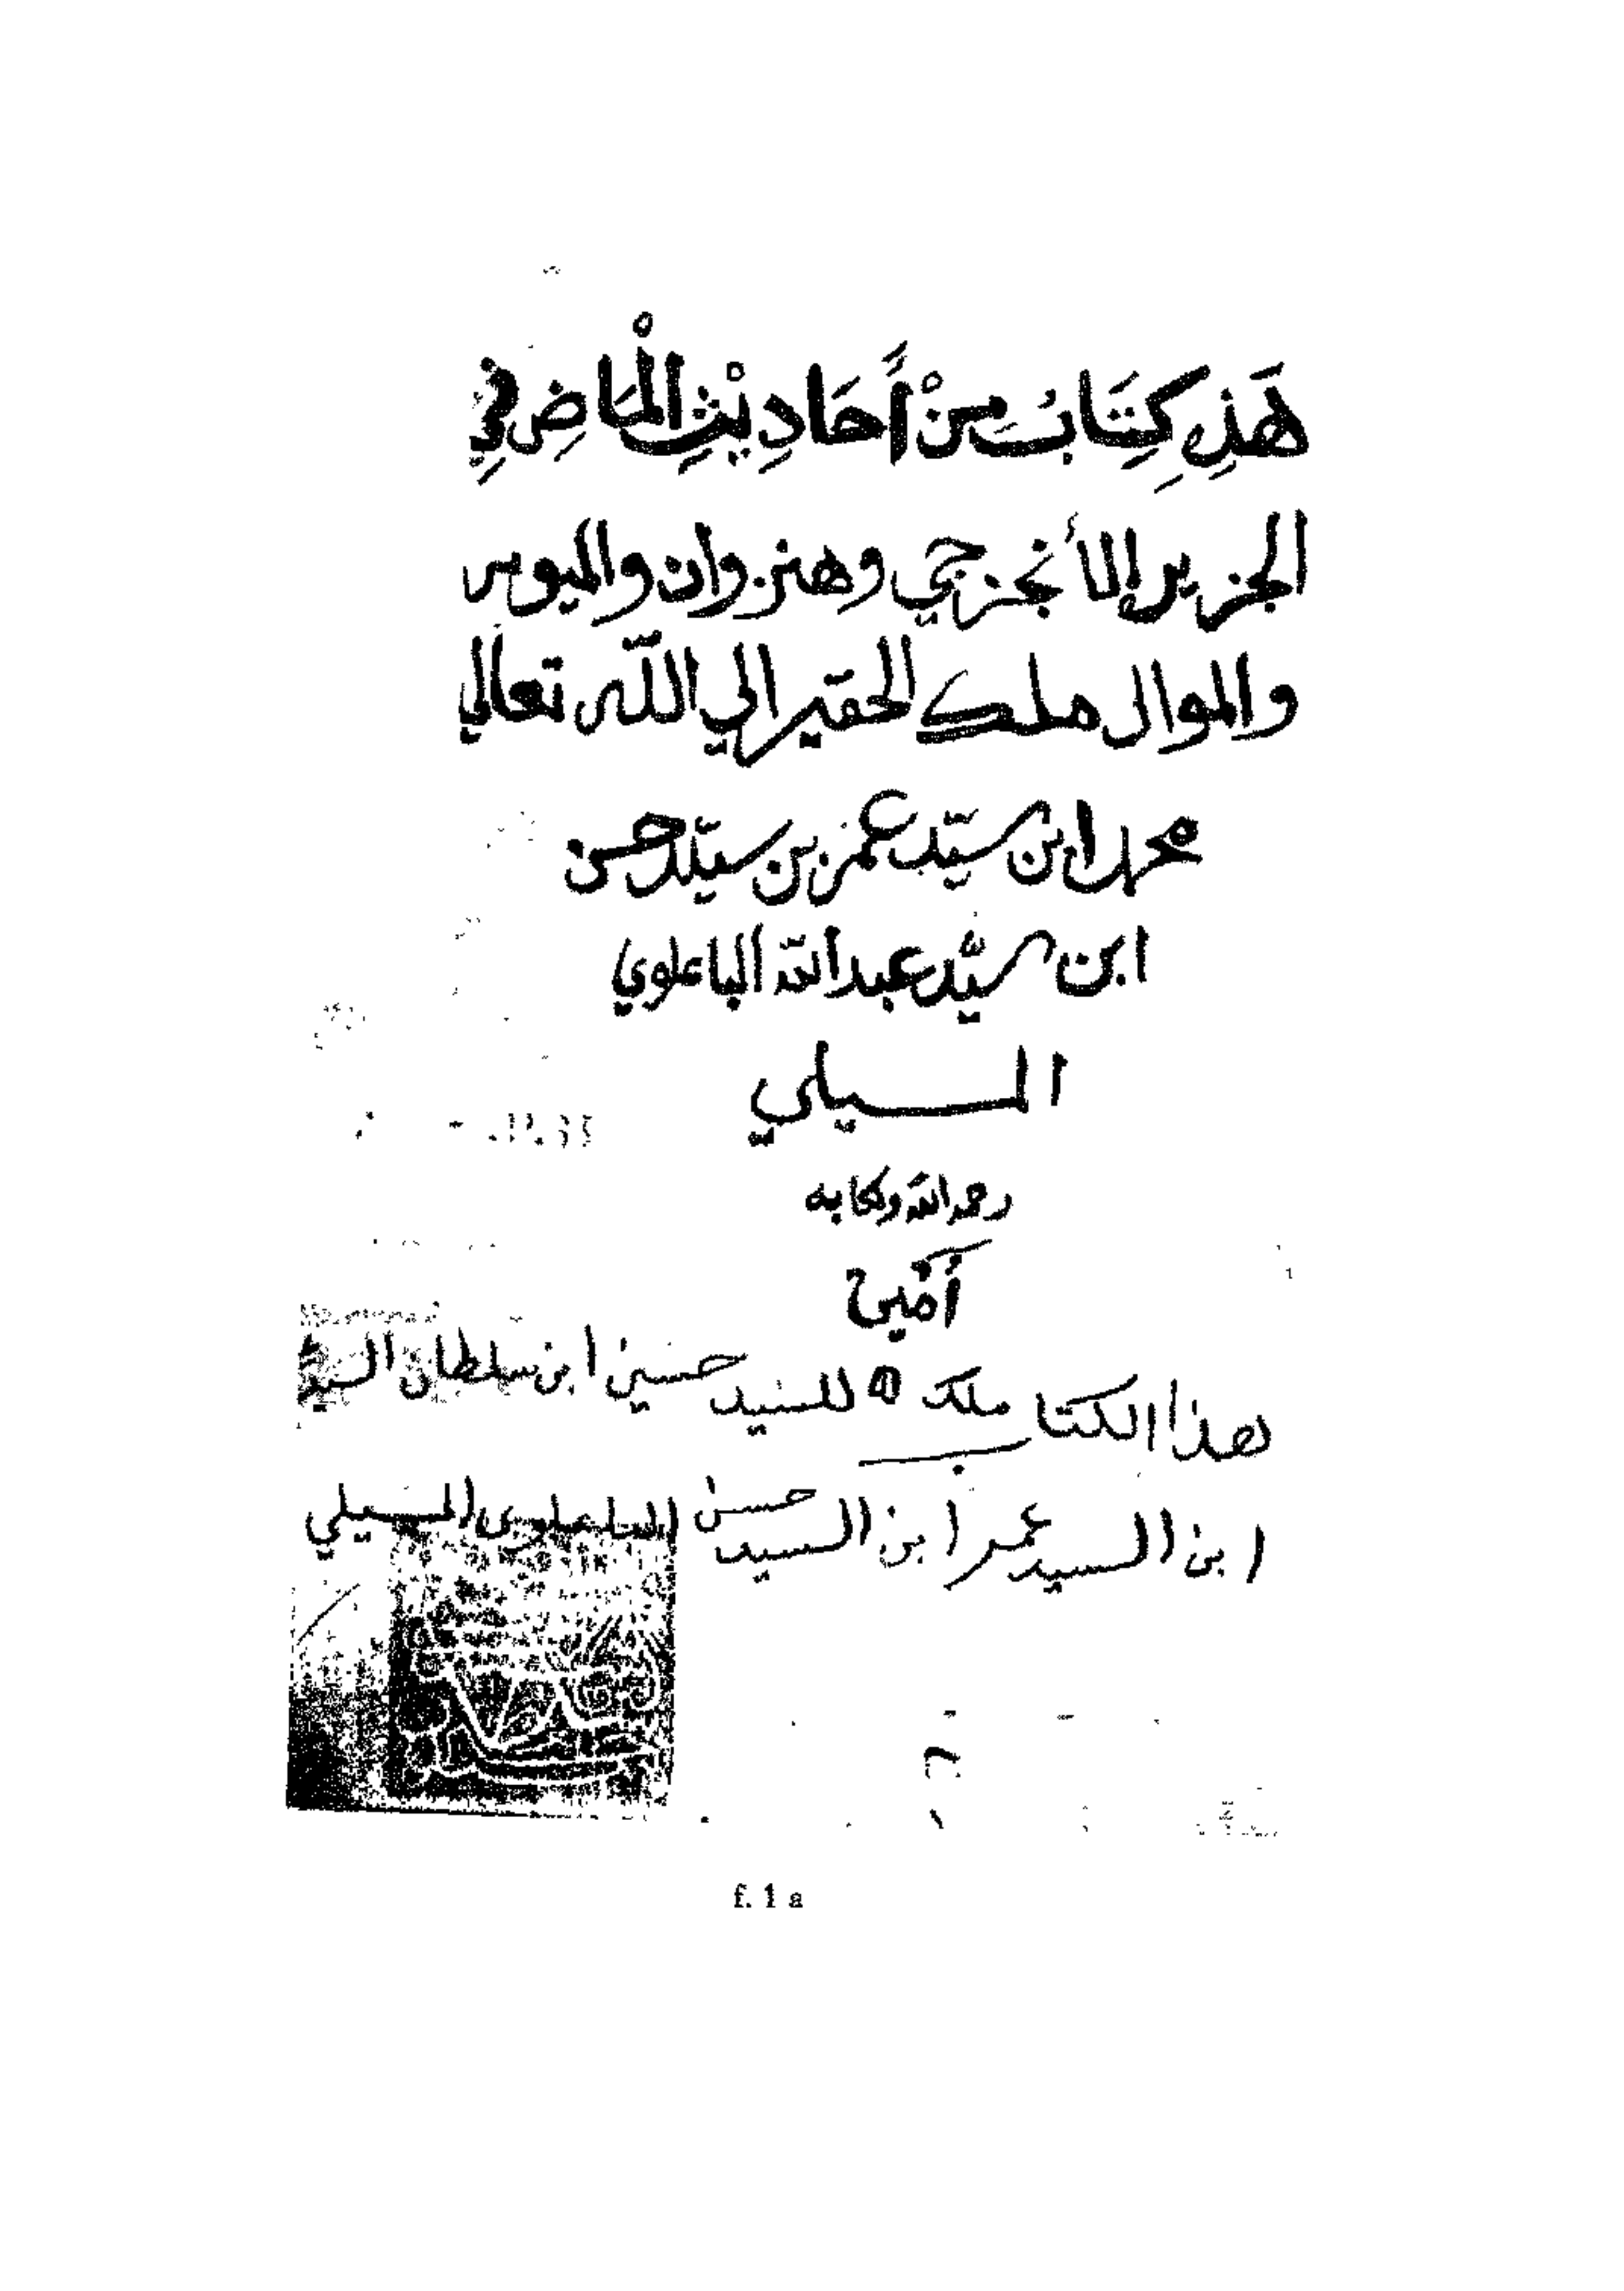 هَذِ كِتَابُ مِنْ أَحَادِيْثِ الْمَاضِ فِي
الجزير إلا أنجزجي وهنزوان والميوس
والموال ملك الحقير الي اللّه تعالي
محمد ابن سيّد عمر بن سيّد حسن
ابن سيّد عبد اللّه الباعلوي
المسيلي
رحمه اللّه
أمين
هذا الكتاب ملك للسيد حسين ابن سلطان السيد
ابن السيد عمر ابن السيد حسن الباعلوي المسيلي
f. 1 a